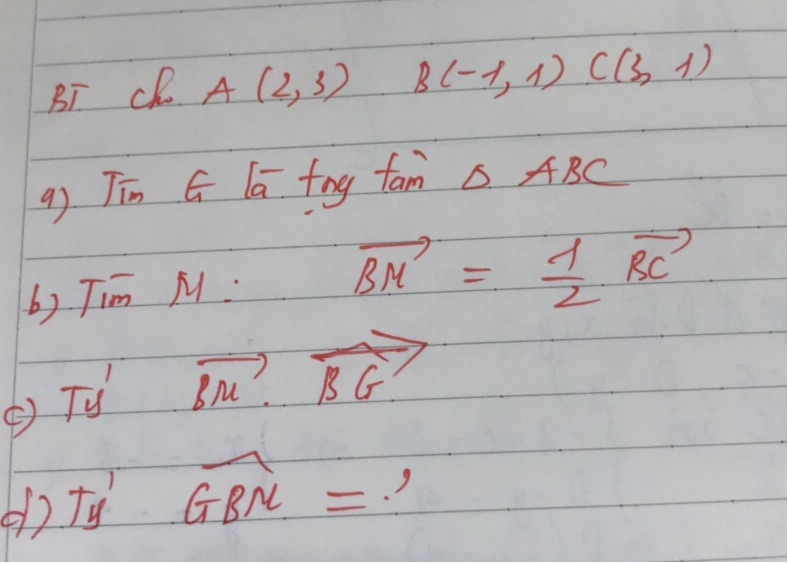 BT cho A (2,3) B(-1,1) C(3,1)
a) Tìm G là trọng tâm Δ ABC
b) Tìm M : \overrightarrow{BM} = \frac{1}{2} \overrightarrow{BC}
c) Tý \overrightarrow{BM} . \overrightarrow{BG}
d) Tý \widehat{GBM} = ?